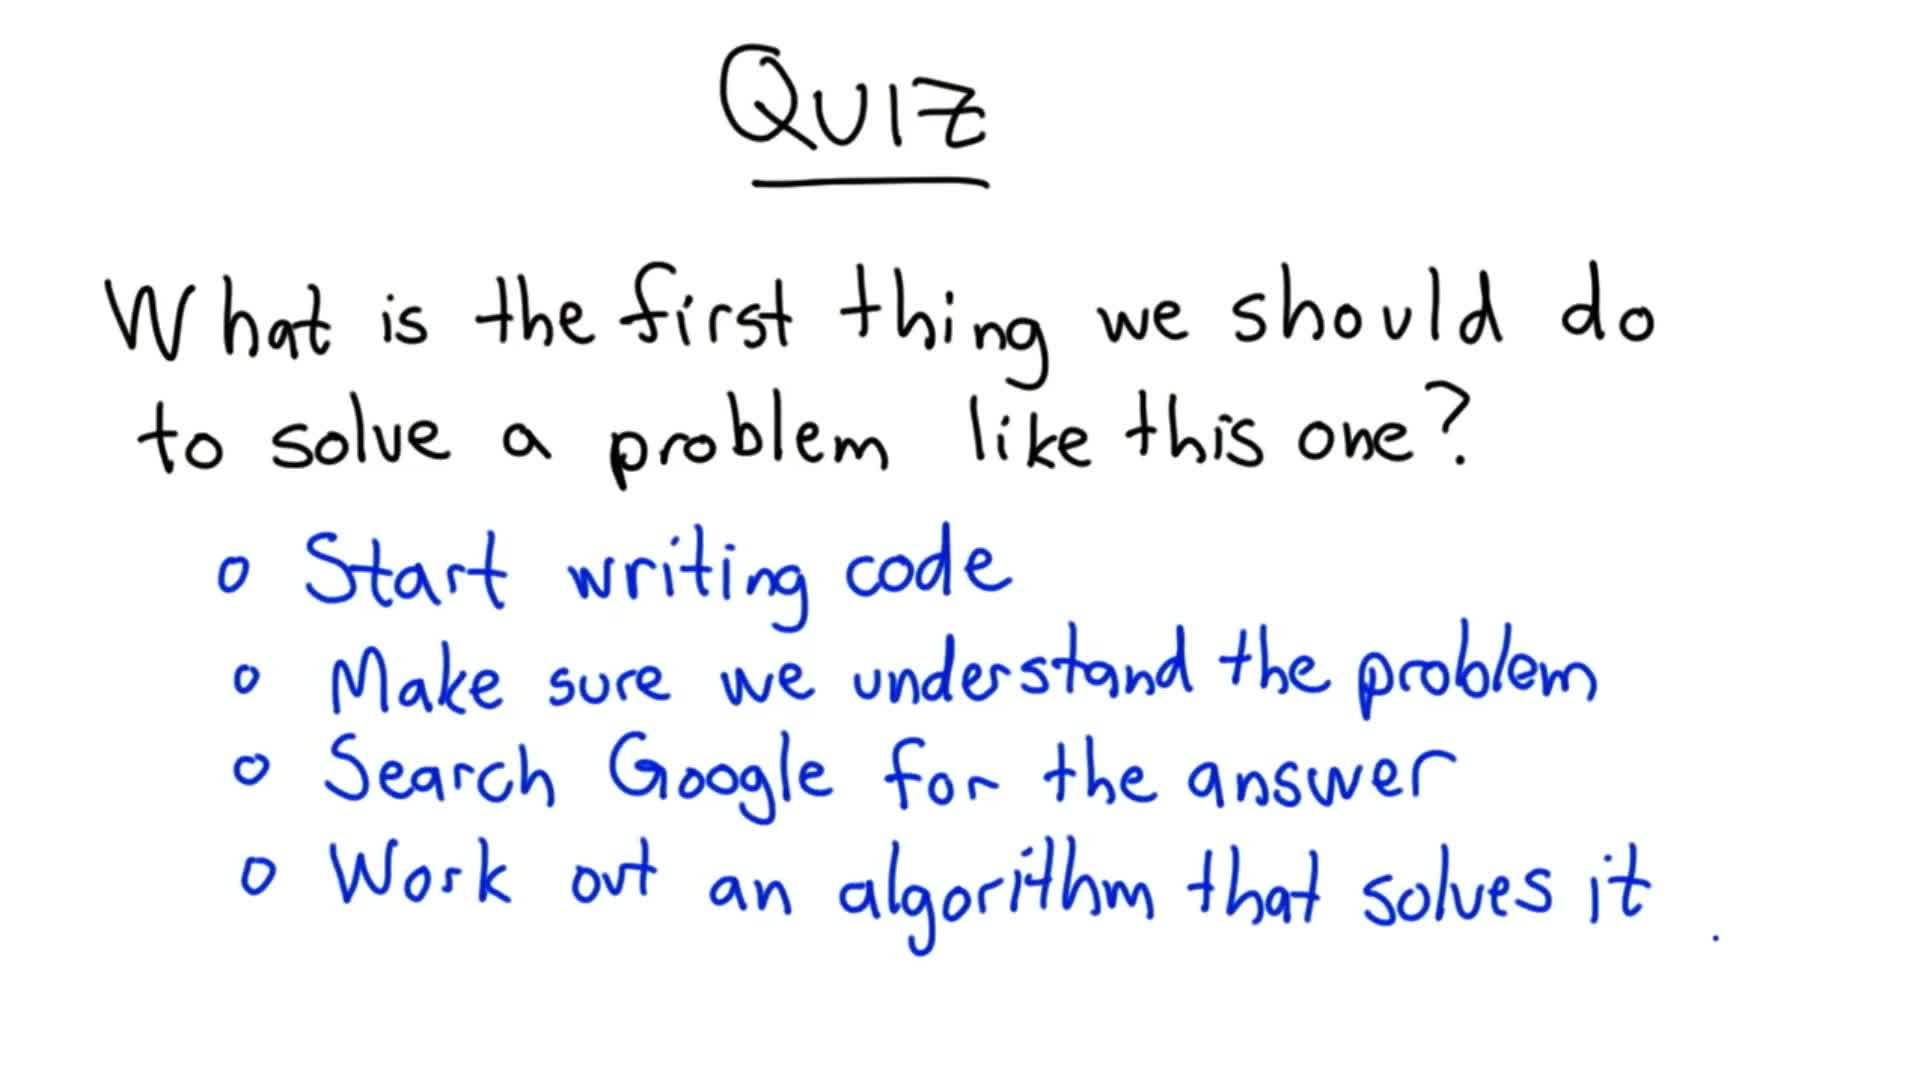 QUIZ
What is the first thing we should do
to solve a problem like this one?
o Start writing code
o Make sure we understand the problem
o Search Google for the answer
o Work out an algorithm that solves it .